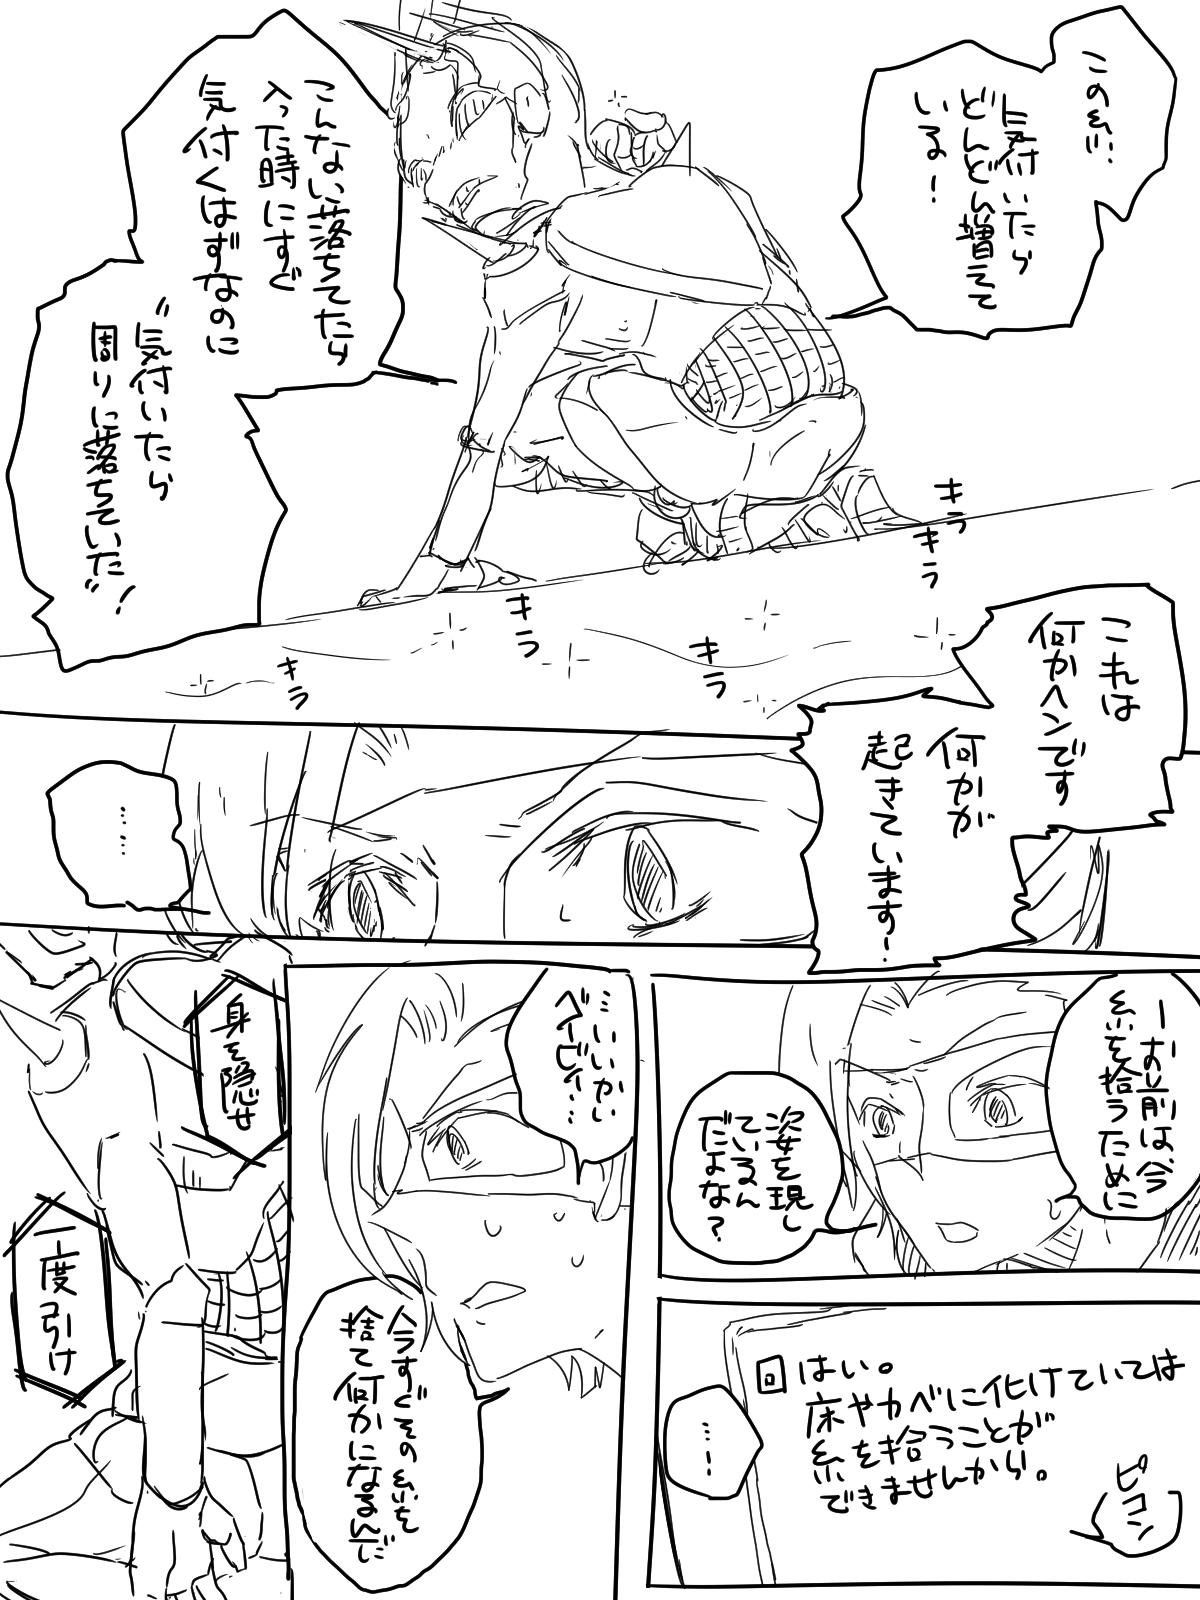 この糸…
気付いたら
どんどん増えて
いる!
こんなに落ちてたら
入った時にすぐ
気付くはずなのに
“気付いたら
周りに落ちていた”!
キラ
キラ
キラ
キラ
キラ
これは
何かヘンです
何かが
起きています!
……
ーお前は、今
糸を拾うために
姿を現し
ているん
だよな?
回 はい。
床やカベに化けていては
糸を拾うことが
できませんから。
ピコン
…!
…いいかい
ベイビィ…
今すぐその糸を
捨て何かになるんだ
身を隠せ
一度引け